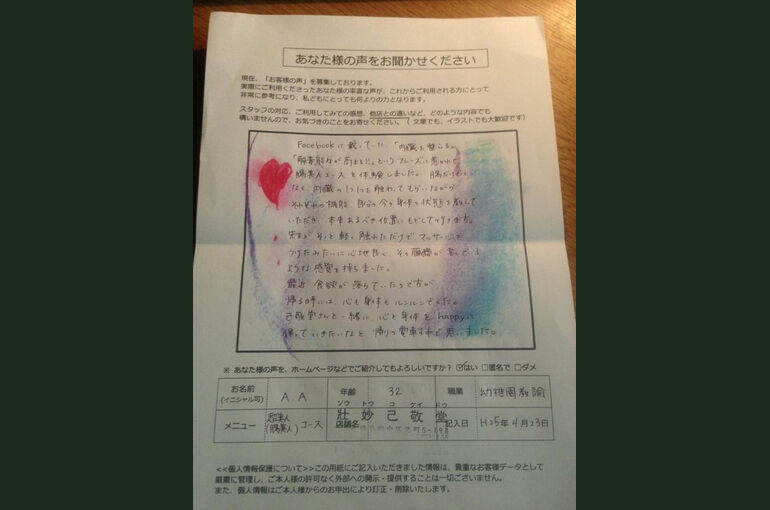 あなた様の声をお聞かせください
現在、「お客様の声」を募集しております。
実際にご利用くださったあなた様の率直な声が、これからご利用される方にとって
非常に参考になり、私どもにとっても何よりの力となります。
スタッフの対応、ご利用してみての感想、他店との違いなど、どのような内容でも
構いませんので、お気づきのことをお寄せください。（ 文章でも、イラストでも大歓迎です）
Facebookに載っていた、「内臓を整える。
「解毒能力が高まる!!」というフレーズに惹かれて
腸美人コースを体験しました。腸だけでは
なく、内臓の1つ1つを触れてもらいながら
それぞれの機能、自分の今の身体の状態を教えて
いただき、本来あるべき位置にもどして
先生がそっと軽く触れただけでマッサージを
うけたみたいに心地良く、その臓器が喜んでいる
ような感覚を持ちました。
最近食欲が落ちていたのですが
帰る時には、心も身体もルンルンでした。
己敬堂さんと一緒に、心と身体をhappyに
保っていきたいなと帰りの電車の中で思いました。
※ あなた様の声を、ホームページなどでご紹介してもよろしいですか？ ☑はい □匿名で □ダメ
お名前 (イニシャル可) A.A 年齢 32 職業 幼稚園教諭
メニュー (腸美人)コース 店舗名 ソウ トウ コ ケイ ドウ 壮妙己敬堂 記入日 H25年4月23日
<<個人情報保護について>>この用紙にご記入いただきました情報は、貴重なお客様データとして
厳重に管理し、ご本人様の許可なく外部への開示・提供することは一切ございません。
また、個人情報はご本人様からのお申出により訂正・削除いたします。